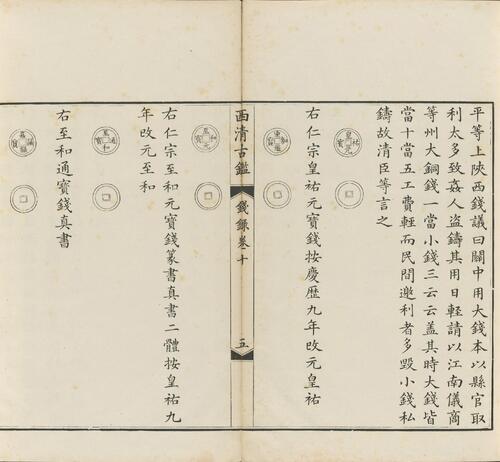 平等上陜西錢議曰關中用大錢本以縣官取
利太多致姦人盜鑄其用日輕請以江南儀商
等州大銅錢一當小錢三云云蓋其時大錢皆
當十當五工費輕而民間邀利者多毀小錢私
鑄故清臣等言之
右仁宗皇祐元寶錢按慶歷九年改元皇祐
西清古鑑
錢錄卷十
五
右仁宗至和元寶錢篆書真書二體按皇祐九
年改元至和
右至和通寶錢真書